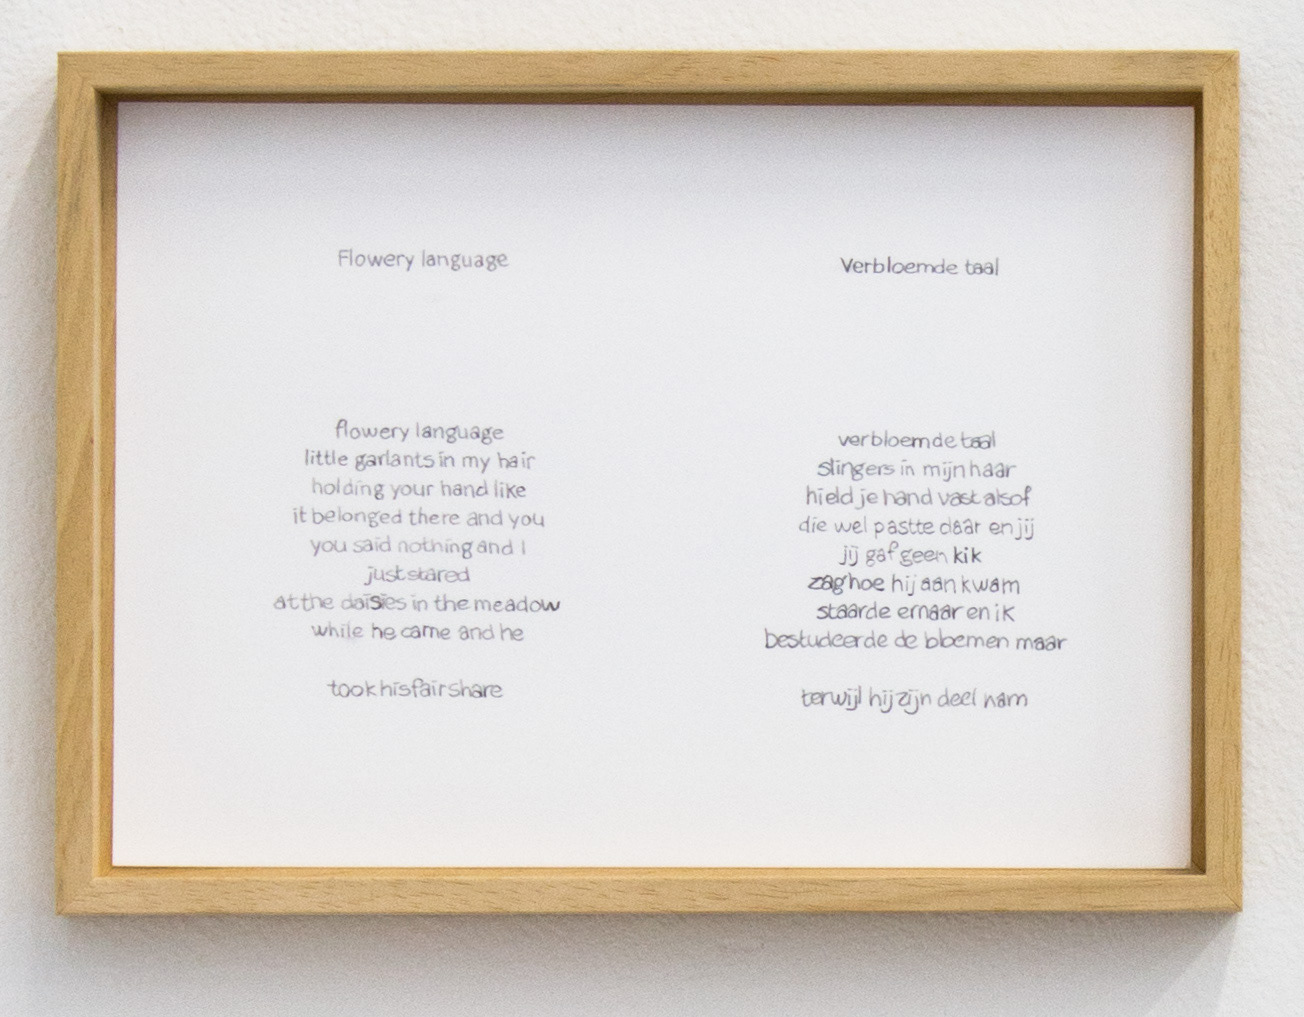 Flowery language
flowery language
little garlants in my hair
holding your hand like
it belonged there and you
you said nothing and I
just stared
at the daisies in the meadow
while he came and he
took his fair share
Verbloemde taal
verbloemde taal
slingers in mijn haar
hield je hand vast alsof
die wel pastte daar en jij
jij gaf geen kik
zag hoe hij aan kwam
staarde ernaar en ik
bestudeerde de bloemen maar
terwijl hij zijn deel nam